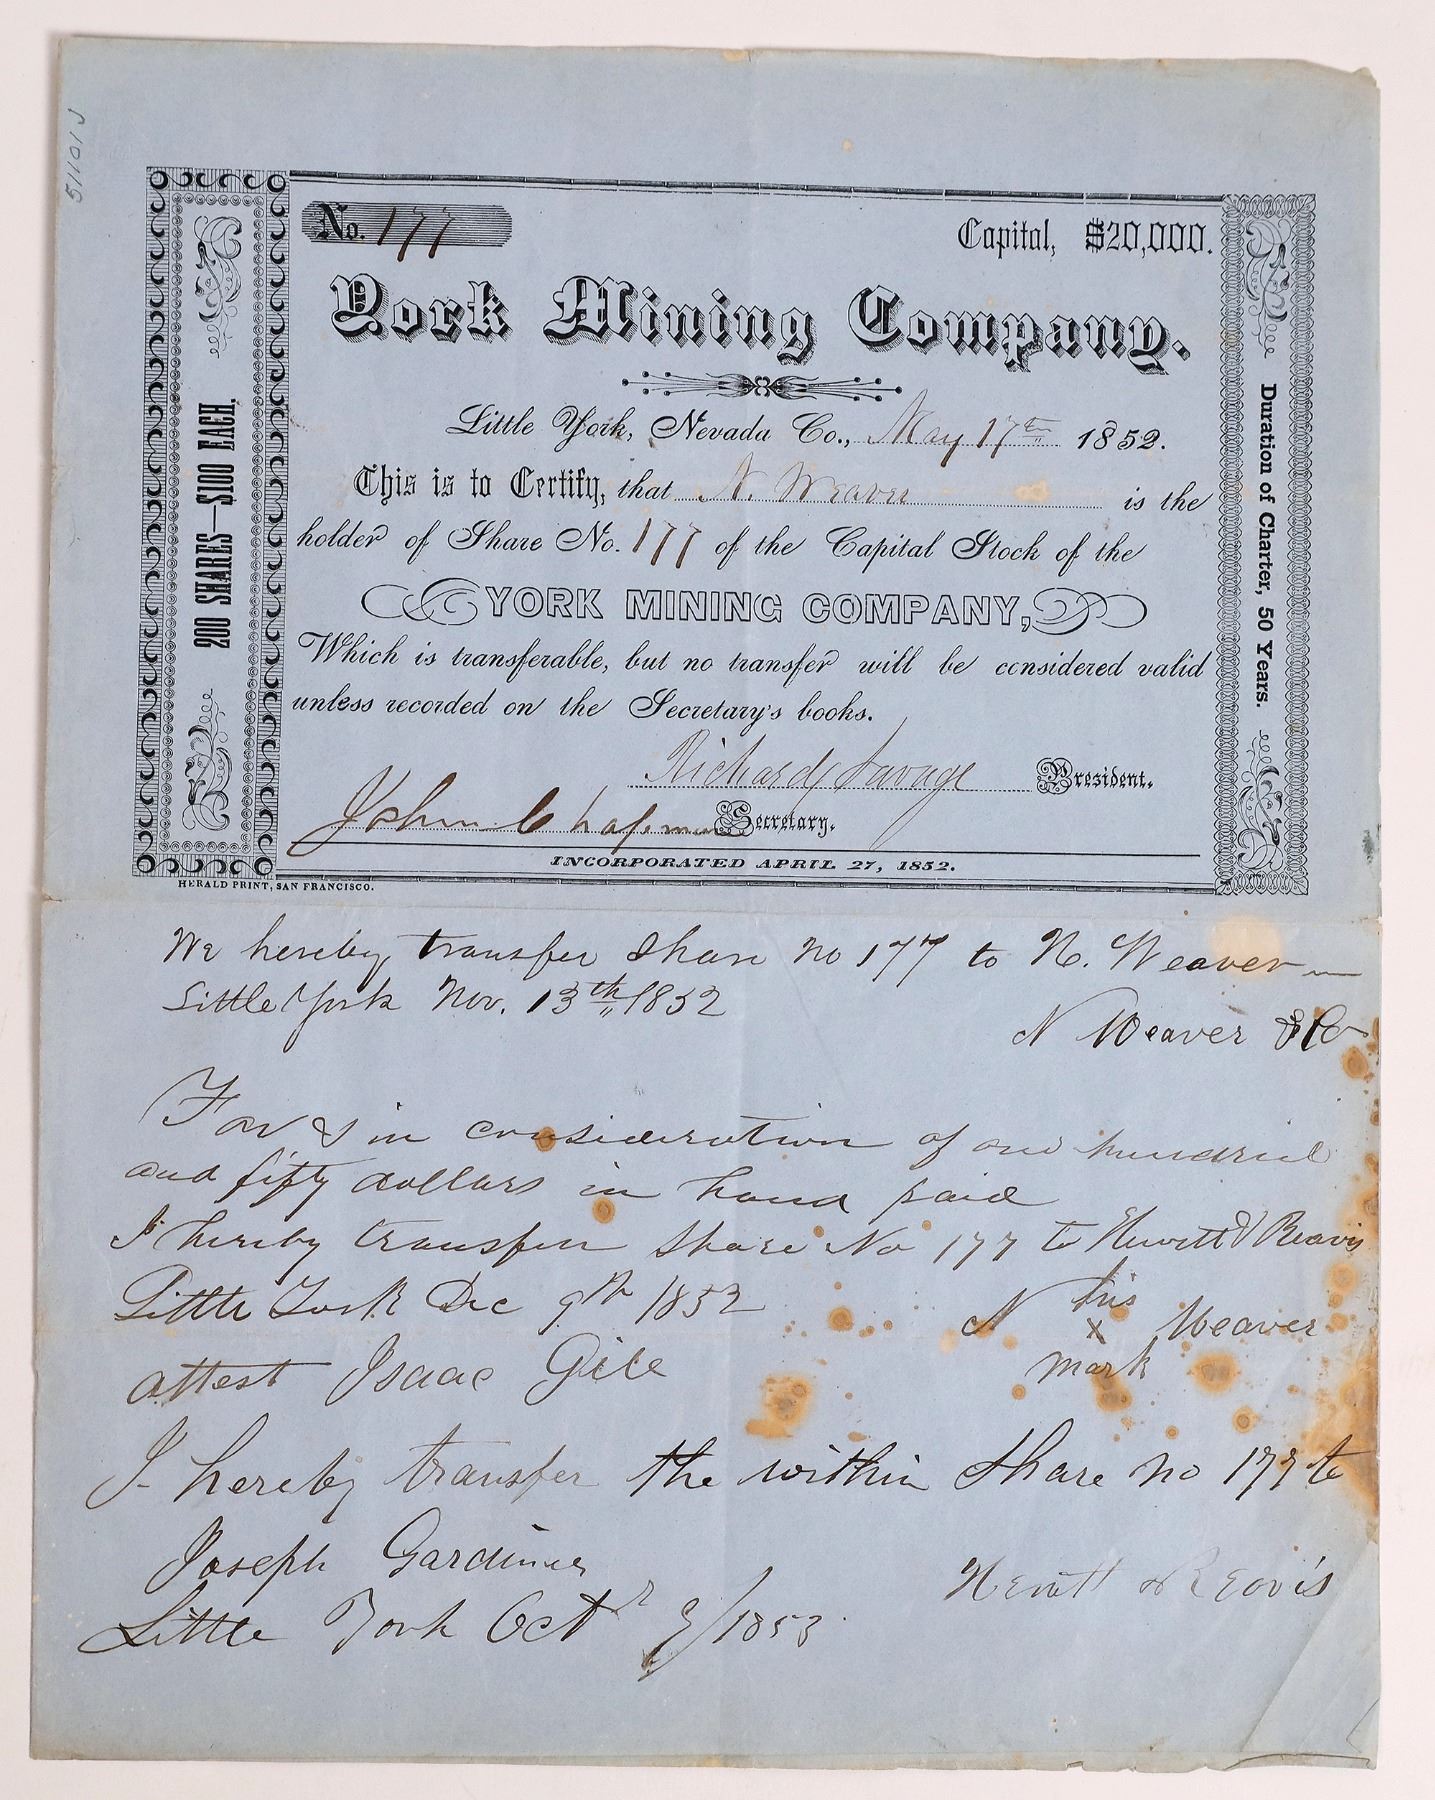 51101 J
No. 177
Capital, $20,000.
York Mining Company.
Little York, Nevada Co., May 17th 1852.
This is to Certify, that N. Weaver is the
holder of Share No. 177 of the Capital Stock of the
YORK MINING COMPANY,
Which is transferable, but no transfer will be considered valid
unless recorded on the Secretary's books.
Richard Savage President.
John Chapman Secretary.
INCORPORATED APRIL 27, 1852.
200 SHARES—$100 EACH.
Duration of Charter, 50 Years.
HERALD PRINT, SAN FRANCISCO.
We hereby transfer Share no 177 to N. Weaver
Little York Nov. 13th 1852
N Weaver & Co
For & in consideration of one hundried
and fifty dollars in hand paid
I hereby transfer Share No 177 to Hewitt & Reavis
Little York Dec 9th 1852
N his x mark Weaver
attest Isaac Gile
I hereby transfer the within Share no 177 to
Joseph Gardiner
Hewitt & Reavis
Little York Octr 9/1853